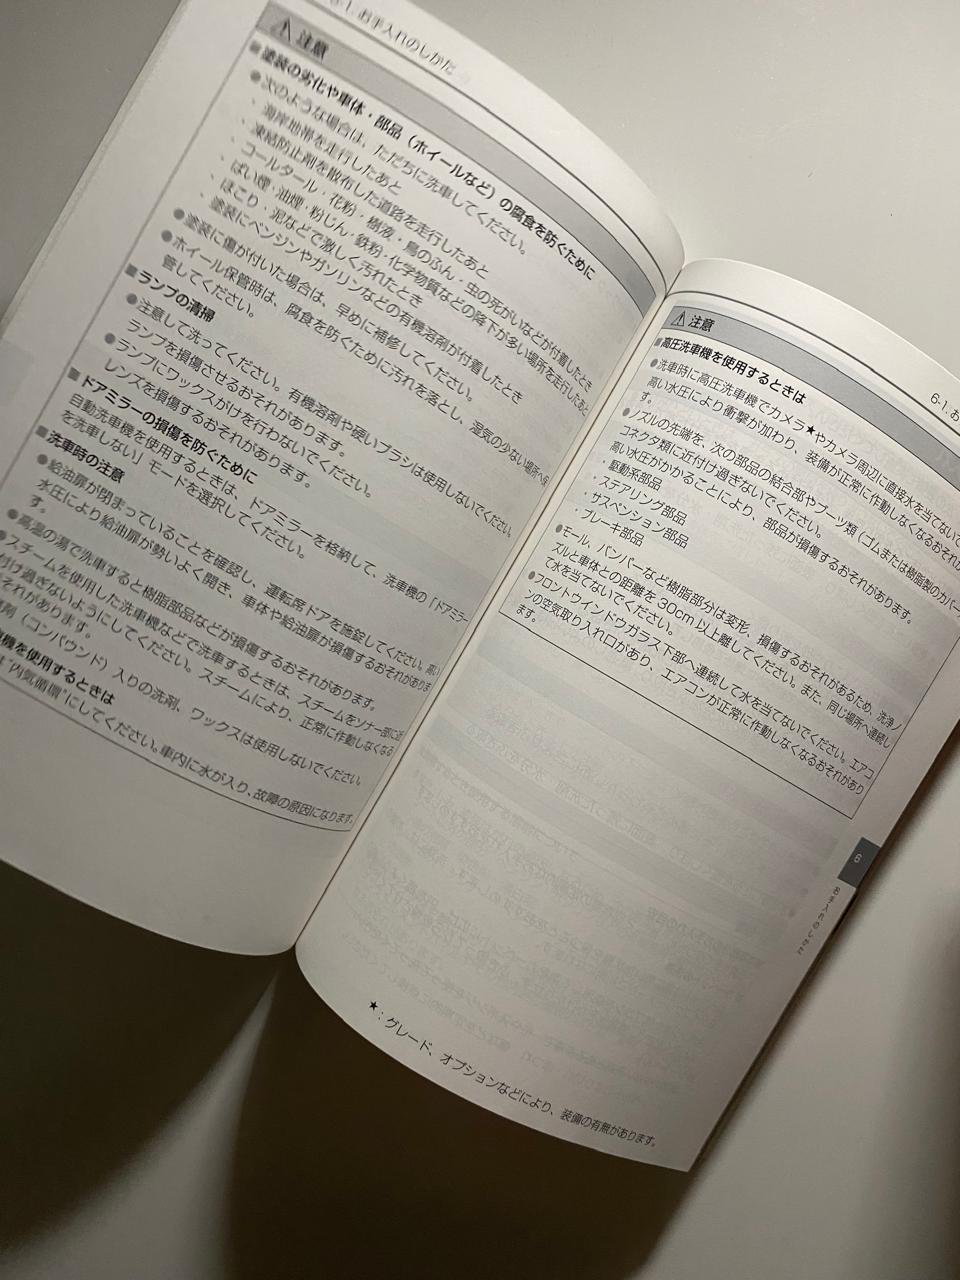 6-1. お手入れのしかた
注意
■塗装の劣化や車体・部品（ホイールなど）の腐食を防ぐために
●次のような場合は、ただちに洗車してください。
・海岸地帯を走行したあと
・凍結防止剤を散布した道路を走行したあと
・コールタール・花粉・樹液・鳥のふん・虫の死がいなどが付着したとき
・ばい煙・油煙・粉じん・鉄粉・化学物質などの降下が多い場所を走行したあと
・ほこり・泥などで激しく汚れたとき
・塗装にベンジンやガソリンなどの有機溶剤が付着したとき
●塗装に傷が付いた場合は、早めに補修してください。
●ホイール保管時は、腐食を防ぐために汚れを落とし、湿気の少ない場所へ保
管してください。
■ランプの清掃
●注意して洗ってください。有機溶剤や硬いブラシは使用しないでください。
ランプを損傷させるおそれがあります。
●ランプにワックスがけを行わないでください。
レンズを損傷するおそれがあります。
■ドアミラーの損傷を防ぐために
自動洗車機を使用するときは、ドアミラーを格納して、洗車機の「ドアミラー
を洗車しない」モードを選択してください。
■洗車時の注意
●給油扉が閉まっていることを確認し、運転席ドアを施錠してください。高い
水圧により給油扉が勢いよく開き、車体や給油扉が損傷するおそれがありま
す。
●高温の湯で洗車すると樹脂部品などが損傷するおそれがあります。
●スチームを使用した洗車機などで洗車するときは、スチームをソナー部に近
付け過ぎないようにしてください。スチームにより、正常に作動しなくなる
それがあります。
剤（コンパウンド）入りの洗剤、ワックスは使用しないでください。
機を使用するときは
“内気循環”にしてください。車内に水が入り、故障の原因になります。
6-1. お
注意
■高圧洗車機を使用するときは
●洗車時に高圧洗車機でカメラ★やカメラ周辺に直接水を当てないで
高い水圧により衝撃が加わり、装備が正常に作動しなくなるおそれが
す。
●ノズルの先端を、次の部品の結合部やブーツ類（ゴムまたは樹脂製のカバー
コネクタ類に近付け過ぎないでください。
高い水圧がかかることにより、部品が損傷するおそれがあります。
・駆動系部品
・ステアリング部品
・サスペンション部品
・ブレーキ部品
●モール、バンパーなど樹脂部分は変形、損傷するおそれがあるため、洗浄ノ
ズルと車体との距離を 30cm 以上離してください。また、同じ場所へ連続し
て水を当てないでください。
●フロントウインドウガラス下部へ連続して水を当てないでください。エアコ
ンの空気取り入れ口があり、エアコンが正常に作動しなくなるおそれがあり
ます。
6
お手入れのしかた
★：グレード、オプションなどにより、装備の有無があります。